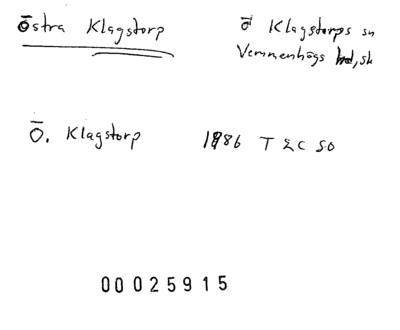 Östra Klagstorp
Ö Klagstorps sn
Vemmenhögs hd, sk
Ö. Klagstorp 1986 T 2 C SO
00025915